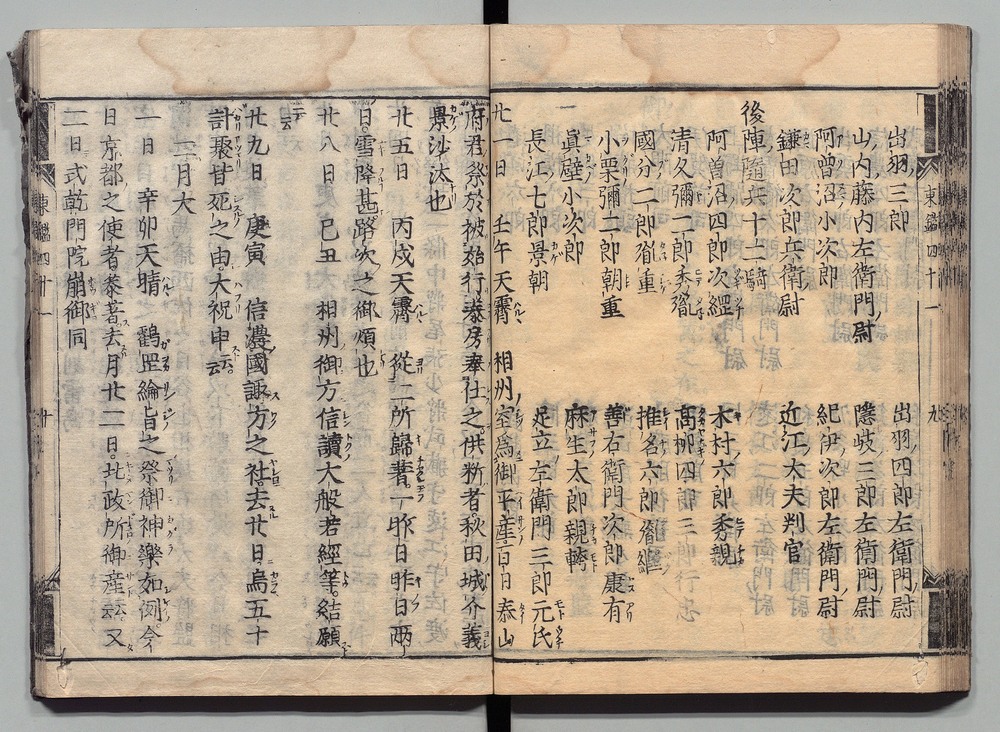 出羽三郎 出羽四郎左衛門尉
山内藤内左衛門尉 隱岐三郎左衛門尉
阿曽沼小次郎 紀伊次郎左衛門尉
鎌田次郎兵衛尉 近江大夫判官
後陣隨兵十二騎
阿曽沼四郎次經 木村六郎秀親
清久彌二郎秀 高柳四郎三郎行忠
國分二郎重 椎名六郎胤繼
小栗彌二郎朝重 善右衛門次郎康有
眞壁小次郎 麻生太郎親轉
長江七郎景朝 足立左衛門三郎元氏
廿一日 壬午天霽 相州室爲御平産百日泰山
府君祭於被始行泰房奉仕之供料者秋田城介義
景沙汰也
廿五日 丙戌天霽 從二所歸著一昨日昨日兩
日雪降甚路次之御煩也
廿八日 己丑 相州御方信讀大般若經等結願
云云
廿九日 庚寅 信濃國諏方之社去廿日烏五十
計聚甘死之由大祝申云云
三月大
一日 辛卯天晴 鶴岡綸旨之祭御神樂如例今
日京都之使者參著去月廿二日北政所御産云云又
二日式乾門院崩御同
東鑑四十一 九
東鑑四十一 十